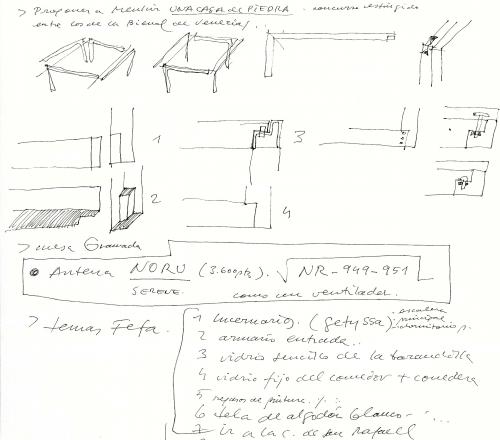 > Proponer a Menchu UNA CASA DE PIEDRA - concurso restringido
entre los de la Bienal de Venecia...
1
2
3
4
> mesa Granada
Antena NORU (3.600 pts). NR-949-951
SERENE. como un ventilador.
> temas Fefa.
1 lucernarios. (getyssa) escalera principal dormitorio p.
2 armario entrada..
3 vidrio sencillo de la barandilla
4 vidrio fijo del comedor + corredera
5 repasos de pintura. y
6 tela de algodón blanco - ...
7 ir a la c. de san Rafael